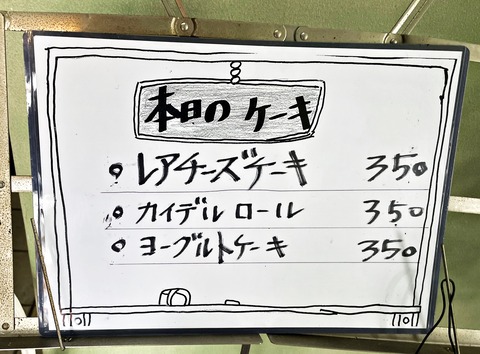 本日のケーキ
○ レアチーズケーキ 350
○ カイデルロール 350
○ ヨーグルトケーキ 350